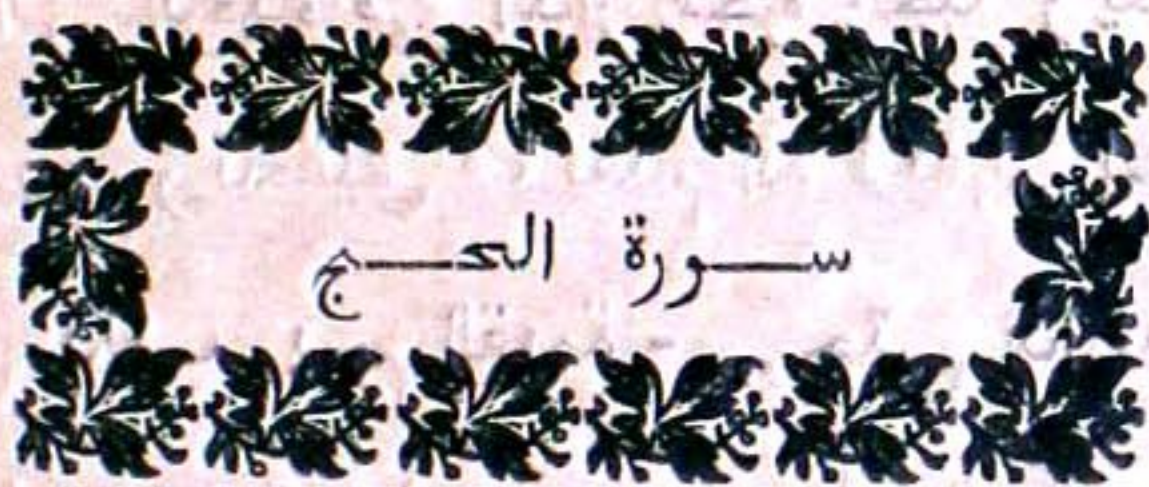 سورة الحج